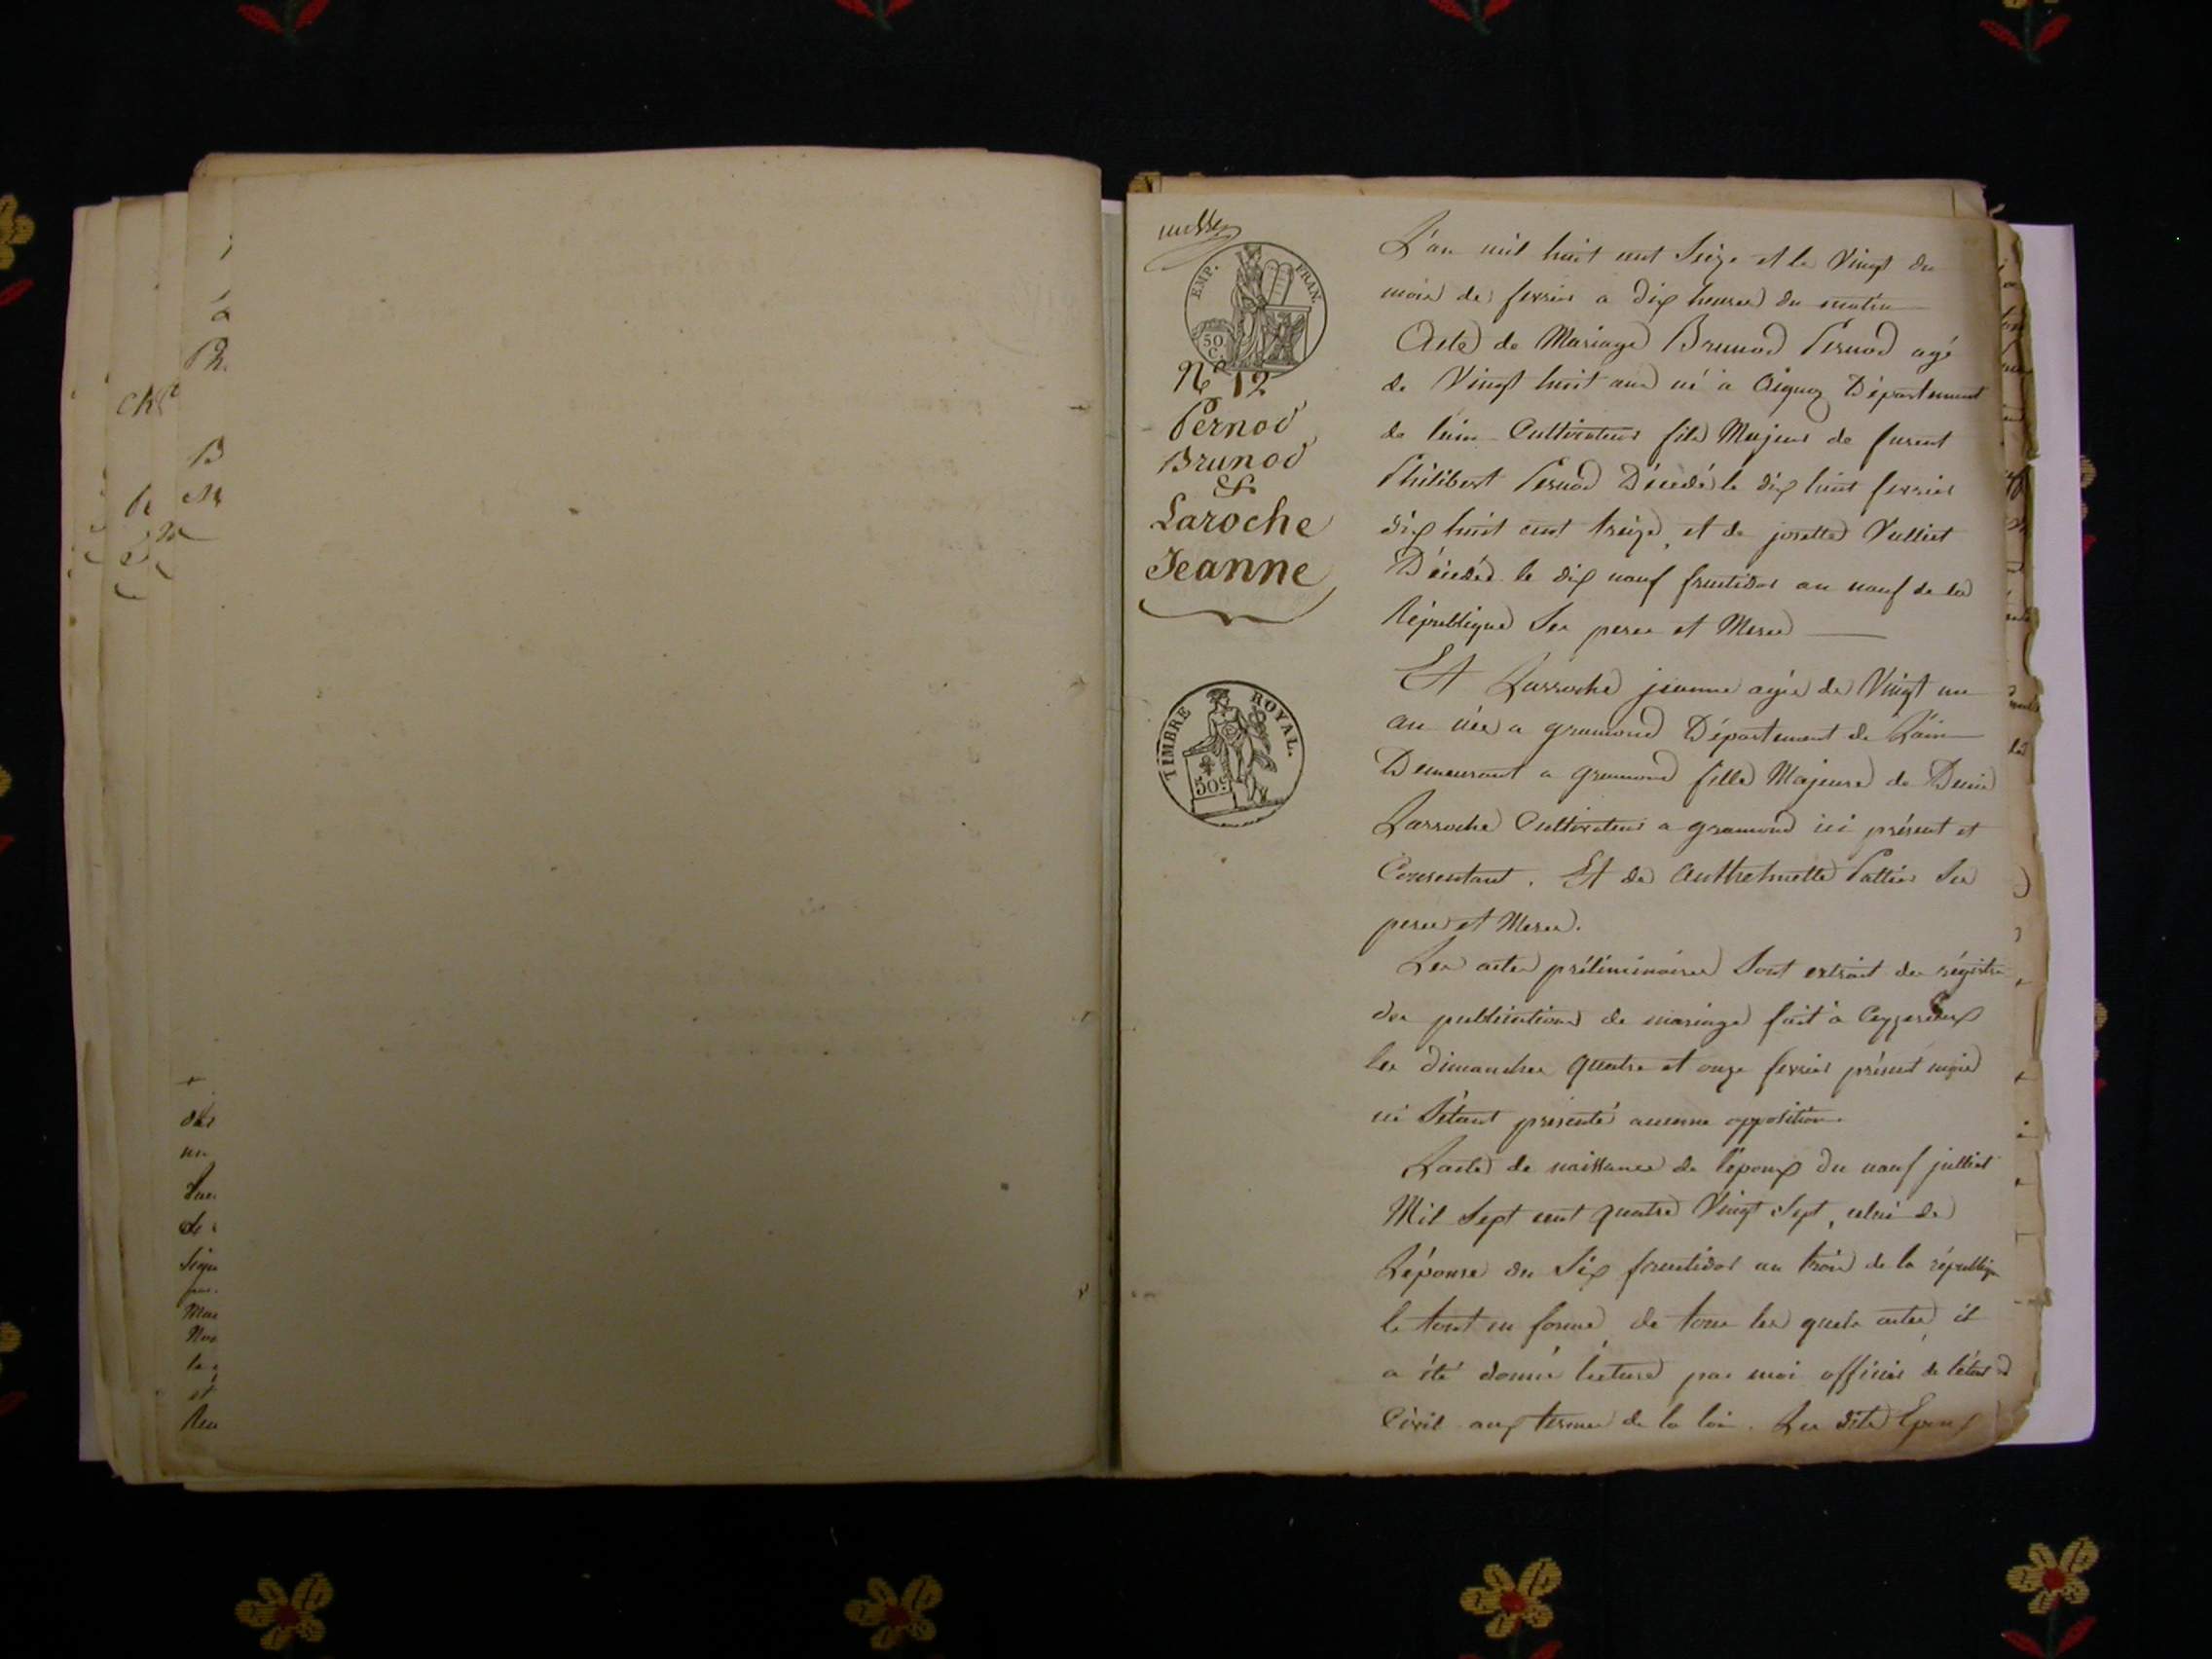 EMP. FRAN.
50 C.
Nº 12
Pernod
Brunod
&
Laroche
Jeanne
TIMBRE ROYAL.
50 c.
L'an mil huit cent Seize et le Vingt du
mois de fevrier a dix heures du matin
Acte de Mariage Brunod Pernod agé
de Vingt huit ans né a Département
de lain Cultivateur fils Majeur de furent
Philibert Pernod Décédé le dix huit fevrier
dix huit cent treize, et de josette Vulliet
Décédée le dix neuf fructidor an neuf de la
République Ses pere et Mere
Et Larroche jeanne agée de Vingt un
an née a gramond Département de Lain
Demeurant a gramond fille Majeure de Denis
Larroche Cultivateur a gramond ici présent et
Consentant. Et de Anthelmette Pattier Ses
pere et Mere.
Les actes préliminaires Sont extrait des régistre
des publications de mariage fait à Ceyzerieux
les dimanches quatre et onze fevrier présent mois
ni S'étant présenté aucune opposition.
Lacte de naissance de l'époux du neuf julliet
Mil Sept cent quatre Vingt Sept, celui de
Lépouse du Six fructidor an trois de la républiq
le tout en forme, de tous les quels actes, il
a été donné lecture par moi officier de l'état
Civil aux termes de la loi. Les dits Epoux